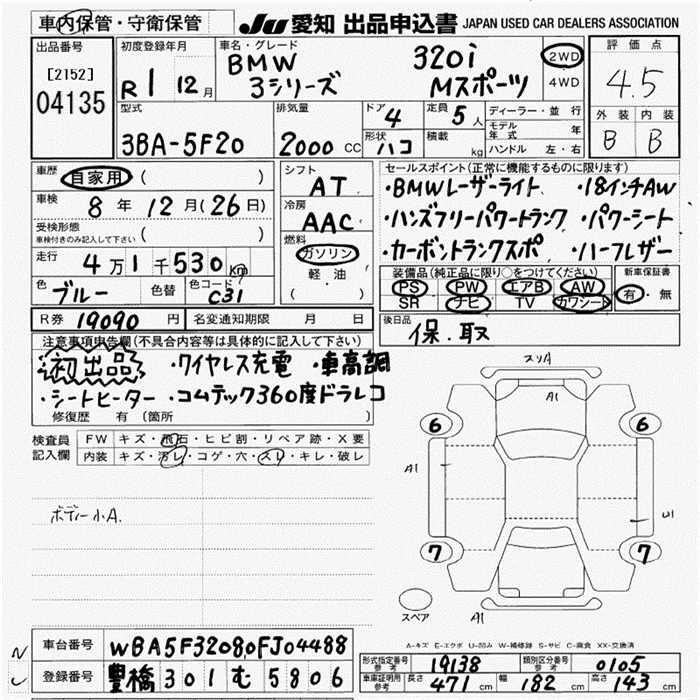 車内保管・守衛保管 JU 愛知 出品申込書 JAPAN USED CAR DEALERS ASSOCIATION
出品番号 [2152] 04135
初度登録年月 R1 12月
車名・グレード BMW 320i
3シリーズ Mスポーツ
2WD
4WD
評価点 4.5
外装 内装
B B
型式 3BA-5F20
排気量 2000 CC
ドア 4
形状 ハコ
定員 5人
積載 kg
ディーラー・並行
モデル年式 年
ハンドル 左・右
車歴 自家用 ( )
車検 8年 12月 (26日)
受検形態 車検付きのみ記入して下さい ( )
走行 4万1千530km
色 ブルー 色替 色コード C31
シフト AT
冷房 AAC
燃料 ガソリン
軽・油
( )
セールスポイント(正常に機能するものに限ります)
・BMWレーザーライト ・18インチAW
・ハンズフリーパワートランク ・パワーシート
・カーボントランクスポ ・ハーフレザー
装備品(純正品に限り○をつけてください)
PS PW エアB AW
SR ナビ TV カワシート
新車保証書 有・無
R券 19090円 名変通知期限 月 日
後日品 保・取
注意事項申告欄(不具合内容等は具体的に記入して下さい)
初出品 ・ワイヤレス充電 ・車高調
・シートヒーター ・コムテック360度ドラレコ
修復歴 有 (箇所 )
検査員記入欄 FW キズ・飛石・ヒビ割・リペア跡・X要
内装 キズ・汚レ・コゲ・穴・スレ・キレ・破レ
ボディー小A.
スリA
A1
6 6
A1
U1
7 7
スペア
A1
A-キズ E-エクボ U-凹み W-補修跡 S-サビ C-腐食 XX-交換済
車台番号 WBA5F32080FJ04488
登録番号 豊橋 301 む 5806
形式指定番号 参考 19138 類別区分番号 参考 0105
車庫証明用 参考 長さ 471 cm 幅 182 cm 高さ 143 cm